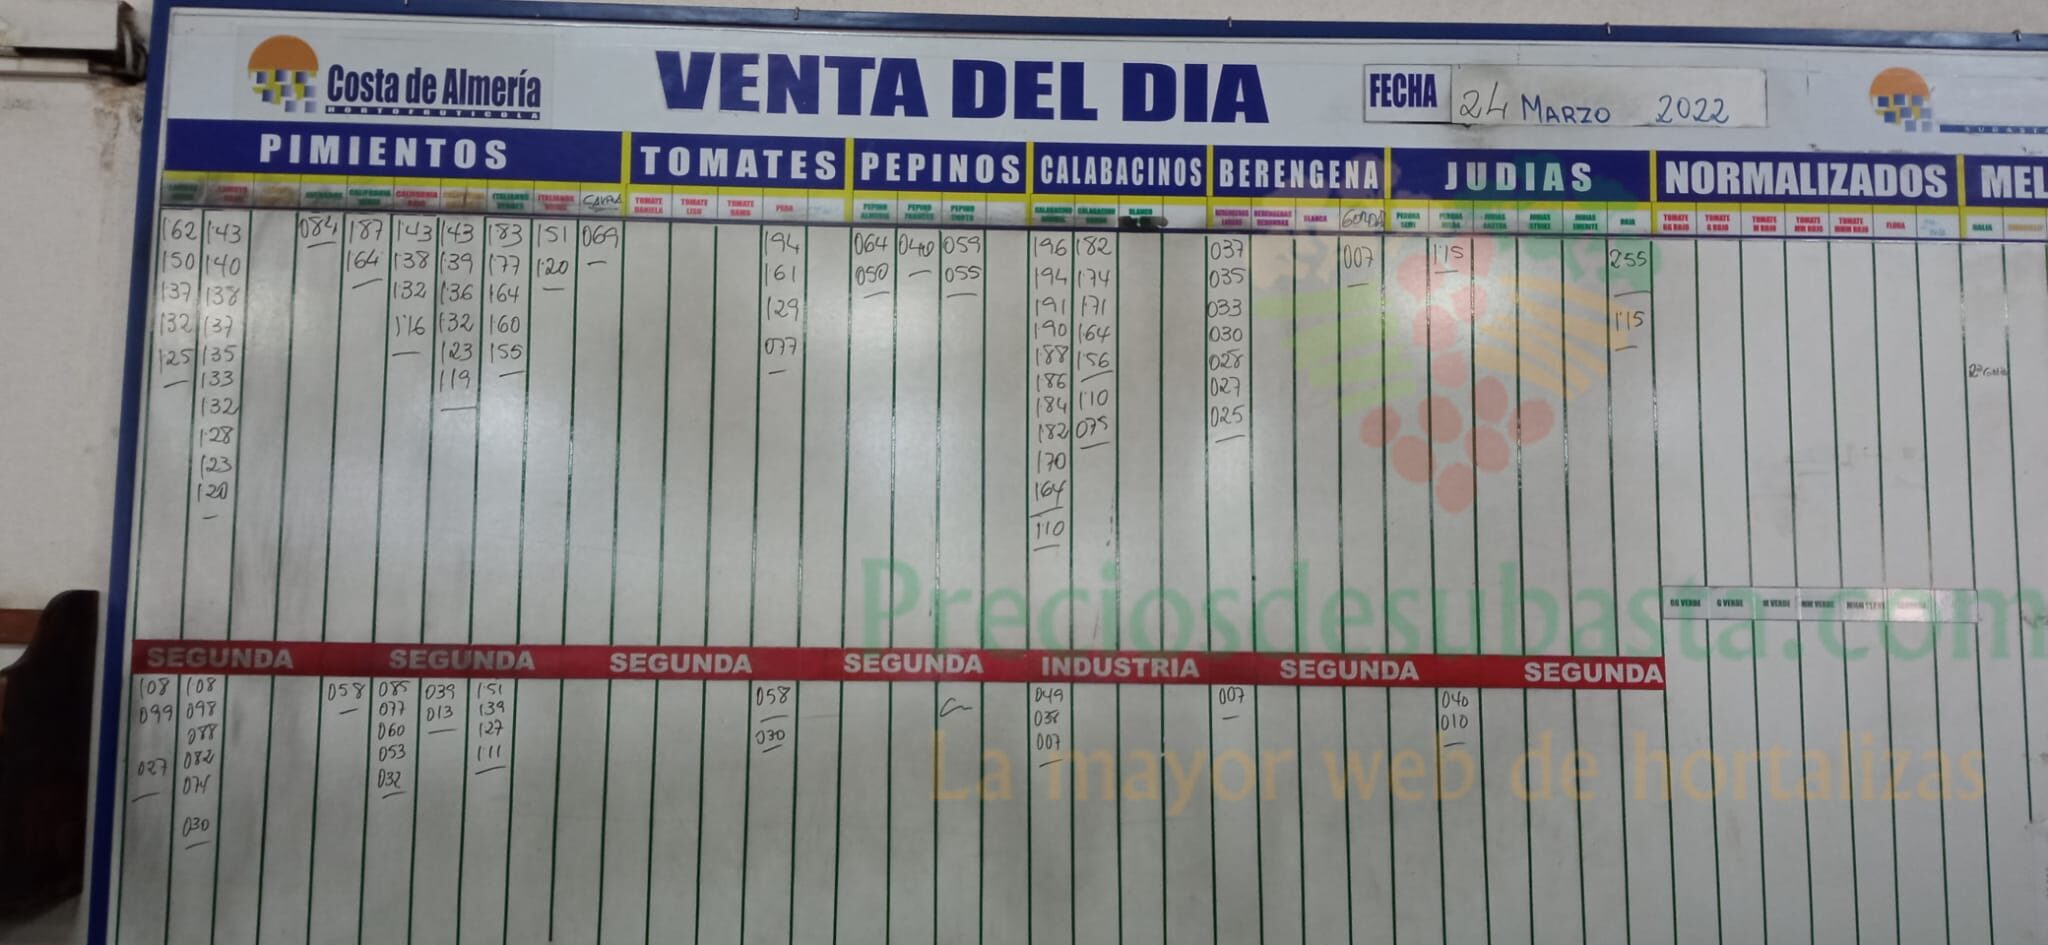 Costa de Almería
HORTOFRUTICOLA
VENTA DEL DIA
FECHA
24 MARZO 2022
SUBASTA
PIMIENTOS TOMATES PEPINOS CALABACINOS BERENGENA JUDIAS NORMALIZADOS MEL
CALIFORNIA ITALIANO TOMATE DANIELA TOMATE LISO TOMATE RAMA PERA PEPINO ALMERIA PEPINO FRANCES PEPINO CORTO BLANCO BLANCA GORDA PERONA JUDIAS STRIKE JUDIAS EMERITE ROJA TOMATE GG ROJO TOMATE G ROJO TOMATE M ROJO TOMATE MM ROJO TOMATE MMM ROJO FLORA GALIA
162 143 084 187 143 143 183 151 069 194 064 040 059 196 182 037 007 1'15 255
150 140 164 138 139 177 120 161 050 055 194 174 035
137 138 132 136 164 129 191 171 033 1'15
132 137 1'16 132 160 077 190 164 030
125 135 123 155 188 156 028
133 119 186 027
132 184 1'10 025
128 182 075
123 170
120 164
1'10
GG VERDE G VERDE M VERDE MM VERDE
Preciosdesubasta.com
SEGUNDA SEGUNDA SEGUNDA SEGUNDA INDUSTRIA SEGUNDA SEGUNDA
108 108 058 085 039 151 058 049 007 040
099 098 077 013 139 030 038 010
088 060 127 007
027 082 053 1'11
074 032
030
La mayor web de hortalizas